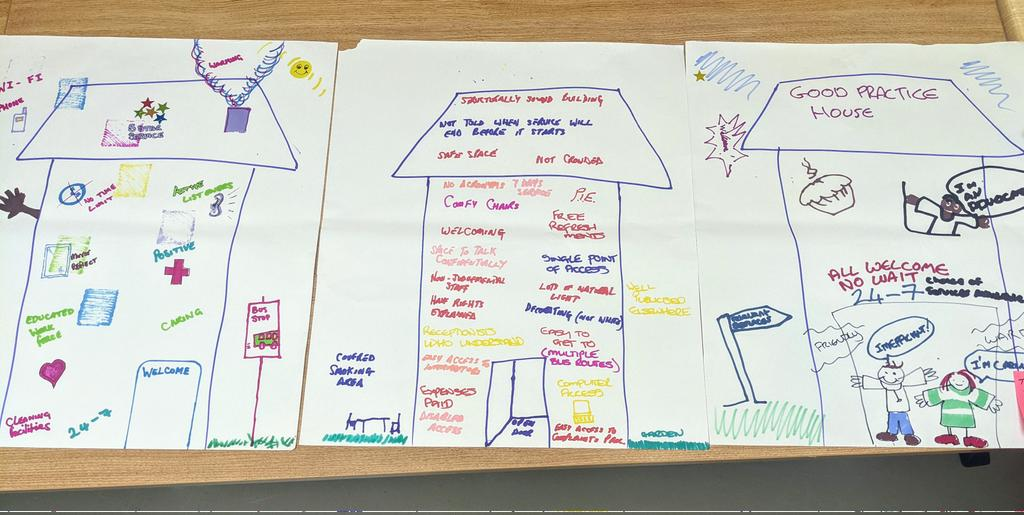 WI-FI
PHONE
WARMING
5 STAR
SERVICE
NO TIME
LIMIT
ACTIVE
LISTENERS
NEVER
REJECT
POSITIVE
EDUCATED
WORK
FORCE
CARING
BUS
STOP
WELCOME
CLEANING
FACILITIES
24-7
STRUCTURALLY SOUND BUILDING
NOT TOLD WHEN SERVICE WILL
END BEFORE IT STARTS
SAFE SPACE
NOT CROWDED
NO ACRONYMS
7 DAYS
SERVICE
P.I.E.
COMFY CHAIRS
FREE
REFRESH
MENTS
WELCOMING
SPACE TO TALK
CONFIDENTIALLY
SINGLE POINT
OF ACCESS
NON-JUDGEMENTAL
STAFF
LOTS OF NATURAL
LIGHT
HAVE RIGHTS
EXPLAINED
DECORATING (NOT WHITE)
WELL
PUBLICISED
ELSEWHERE
RECEPTIONISTS
WHO UNDERSTAND
EASY TO
GET TO
(MULTIPLE
BUS ROUTES)
EASY ACCESS TO
COVERED
SMOKING
AREA
EXPENSES
PAID
DISABLED
ACCESS
COMPUTER
ACCESS
OPEN
DOOR
EASY ACCESS TO
COMPLAINTS PROC
GARDEN
GOOD PRACTICE
HOUSE
Welcome
I'M
AN
ADVOCATE
ALL WELCOME
NO WAIT
24-7
CHOICE OF
SERVICES AVAILABLE
SERVICES
FRIENDLY
WARM
I'M EFFICIENT!
I'M CARING